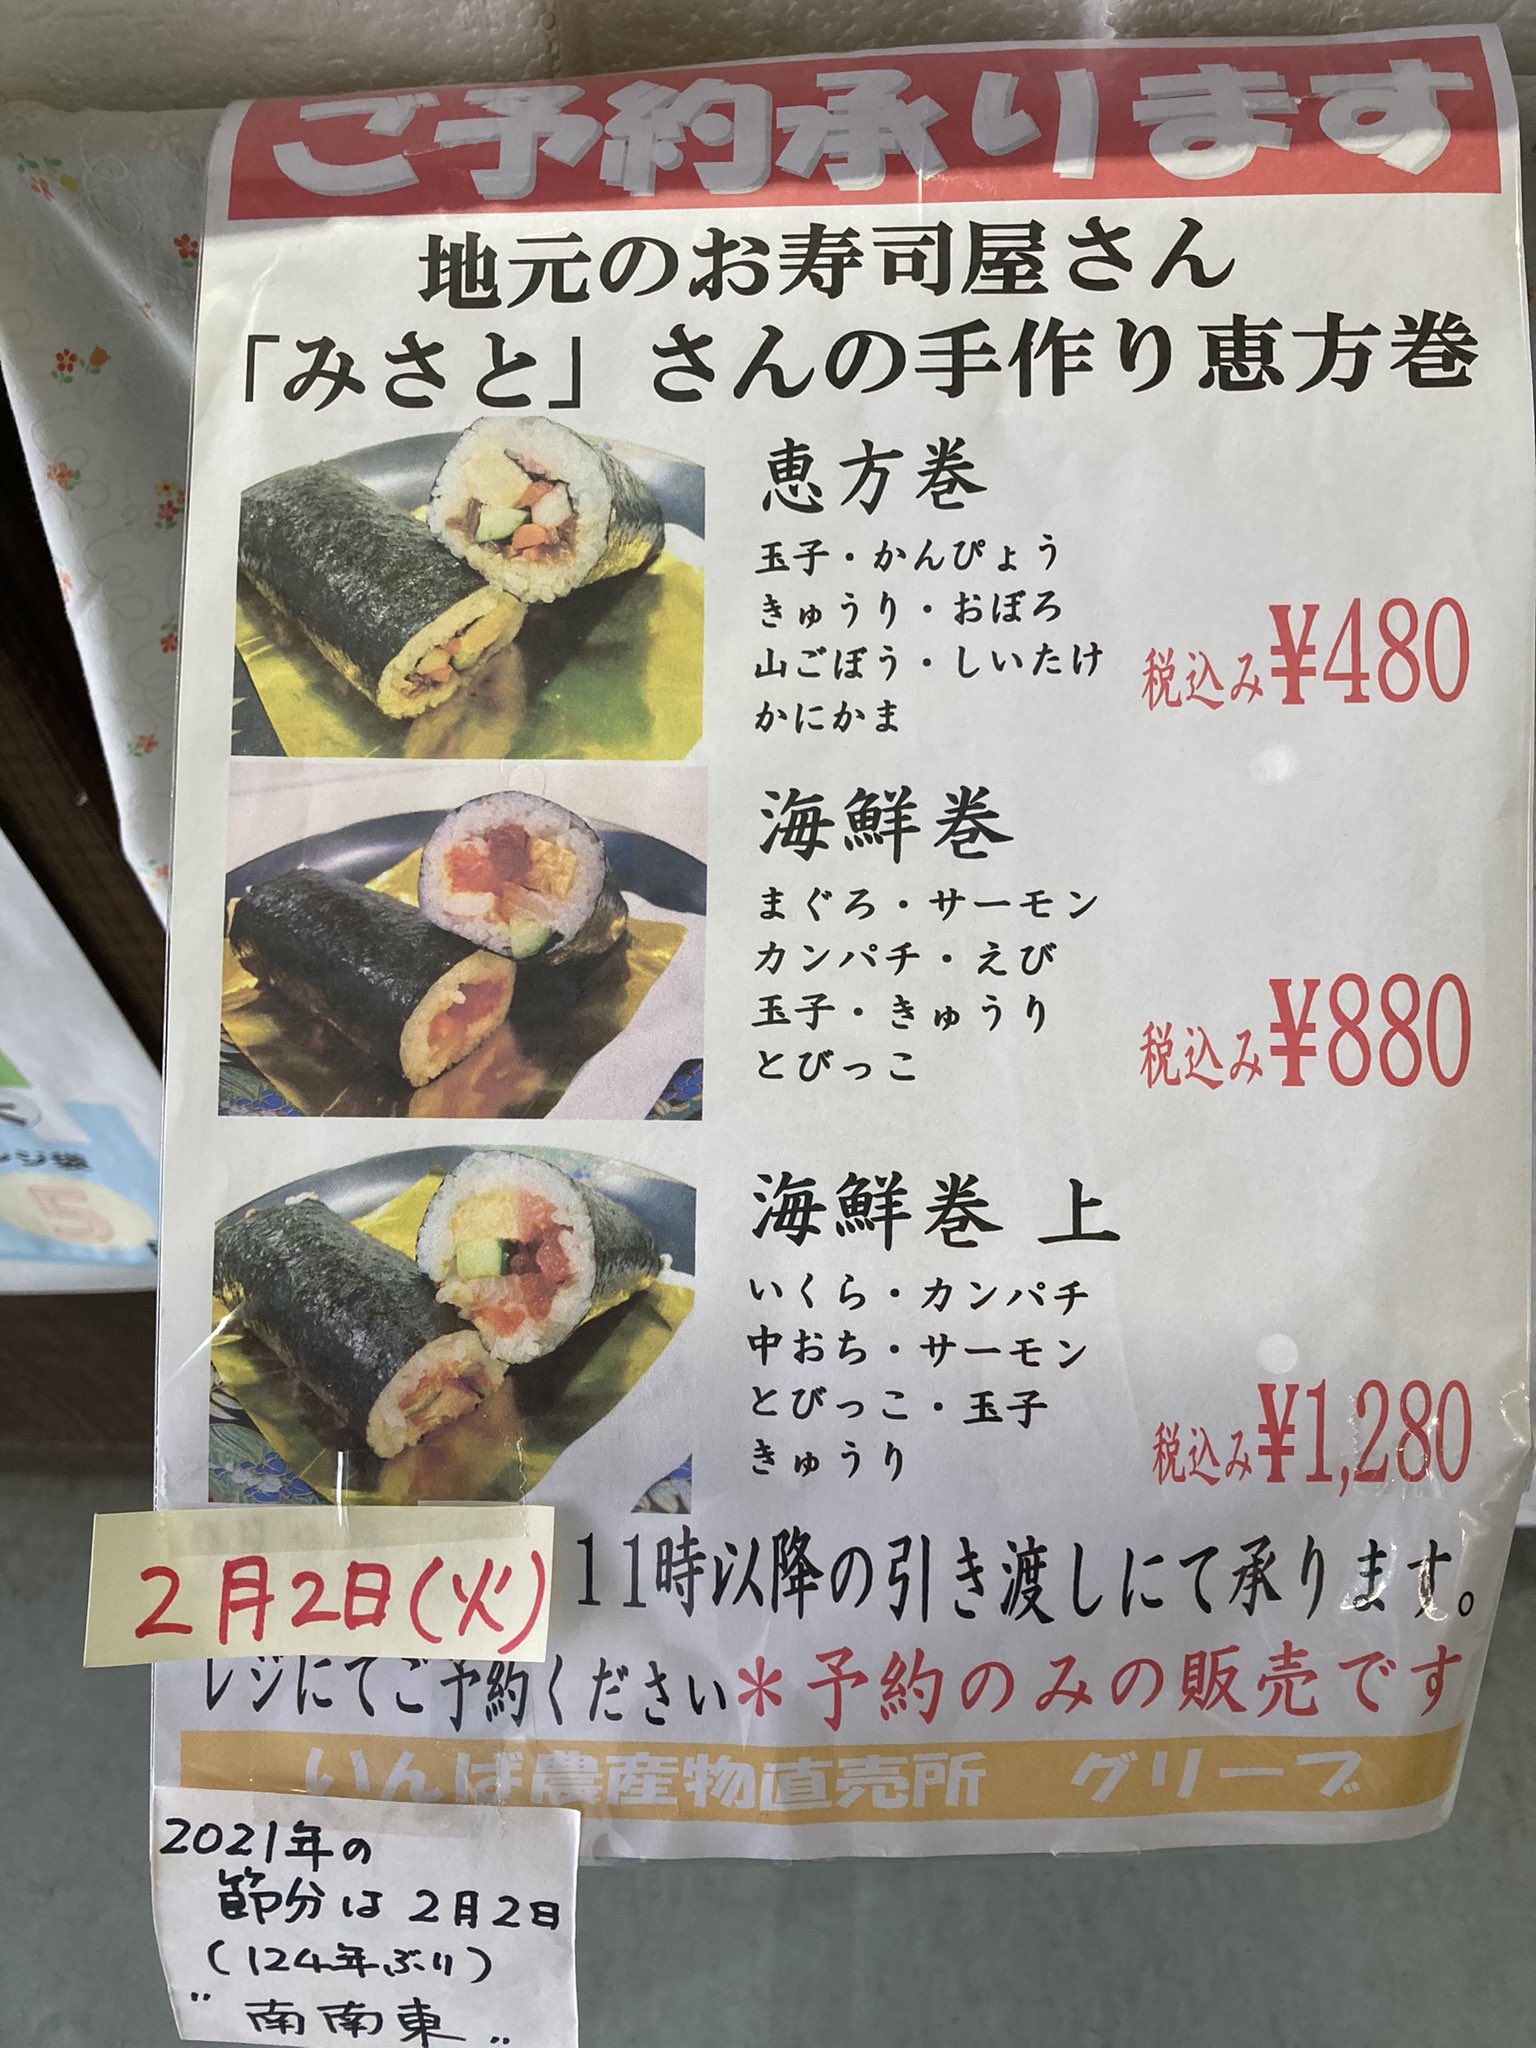 ご予約承ります
地元のお寿司屋さん
「みさと」さんの手作り恵方巻
恵方巻
玉子・かんぴょう
きゅうり・おぼろ
山ごぼう・しいたけ
かにかま
税込み¥480
海鮮巻
まぐろ・サーモン
カンパチ・えび
玉子・きゅうり
とびっこ
税込み¥880
海鮮巻 上
いくら・カンパチ
中おち・サーモン
とびっこ・玉子
きゅうり
税込み¥1,280
2月2日(火) 11時以降の引き渡しにて承ります。
レジにてご予約ください＊予約のみの販売です
いんば農産物直売所 グリーブ
2021年の
節分は2月2日
(124年ぶり)
"南南東"
レジ袋
5